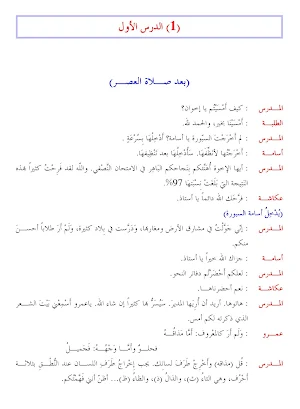 (1) الدرس الأول
(بعد صلاة العصر)
المدرس : كيف أمسيتم يا إخوان؟
الطلبة : أمسينا بخير، والحمد لله.
المدرس : لم أخرجت السبورة يا أسامة؟ أدخلها بسرعة.
أسامة : أخرجتها لأنظفها. سأدخلها بعد تنظيفها.
المدرس : أيها الإخوة أهنئكم بنجاحكم الباهر في الامتحان النصفي. والله لقد فرحت كثيرا بهذه
النتيجة التي بلغت نسبتها 97%.
عكاشة : فرحك الله دائما يا أستاذ.
(يدخل أسامة السبورة)
المدرس : إني جولت في مشارق الأرض ومغاربها، ودرست في بلاد كثيرة، ولم أر طلابا أحسن
منكم.
أسامة : جزاك الله خيرا يا أستاذ.
المدرس : لعلكم أحضرتم دفاتر النحو.
عكاشة : نعم أحضرناها.
المدرس : هاتوها. أريد أن أريها المدير. سيسر بها كثيرا إن شاء الله. يا عمرو أسمعني بيت الشعر
الذي ذكرته لكم أمس.
عمرو : ولم أر كالمعروف: أما مذاقه
فحلو وأما وجهه فجميل
المدرس : قل (مذاقه) وأخرج طرف لسانك. يجب إخراج طرف اللسان عند النطق بثلاثة
أحرف، وهي الثاء (ث)، والذال (ذ)، والظاء (ظ)... أظن أنني فهمتكم.